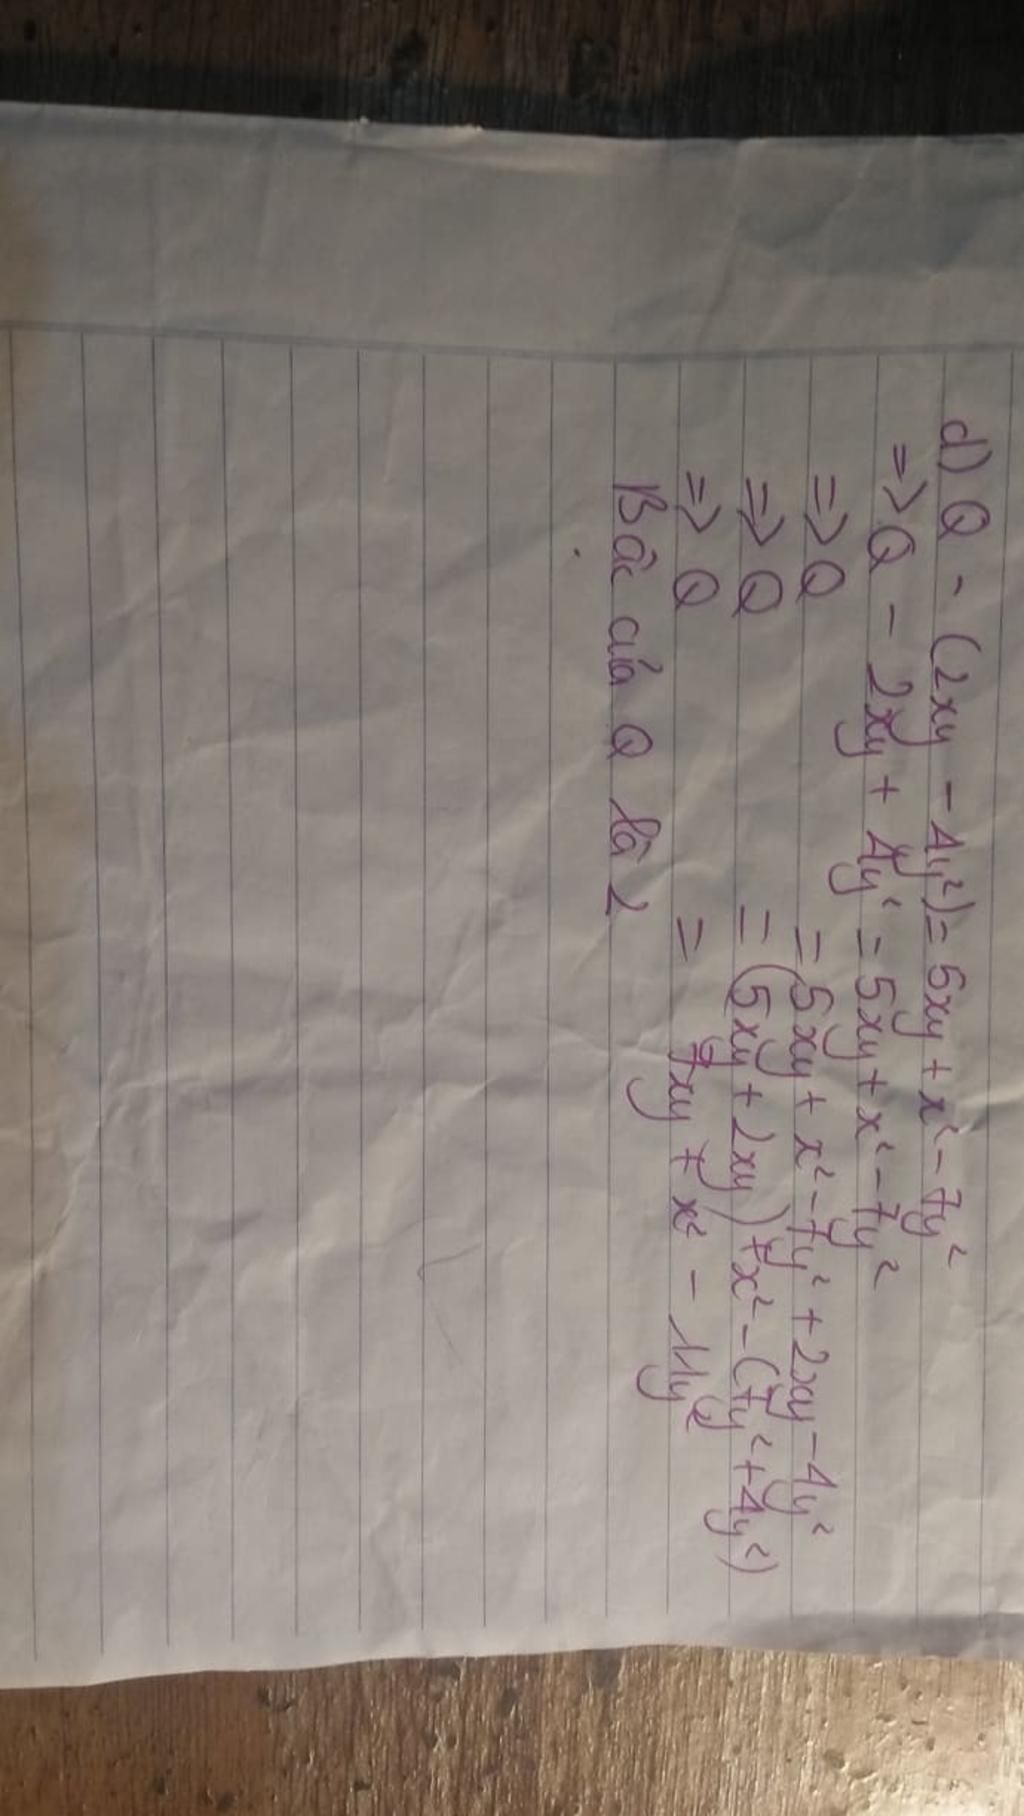 d) Q - (2xy - 4y²) = 5xy + x² - 7y²
=> Q - 2xy + 4y² = 5xy + x² - 7y²
=> Q = 5xy + x² - 7y² + 2xy - 4y²
=> Q = (5xy + 2xy) + x² - (7y² + 4y²)
=> Q = 7xy + x² - 11y²
Bậc của Q là 2